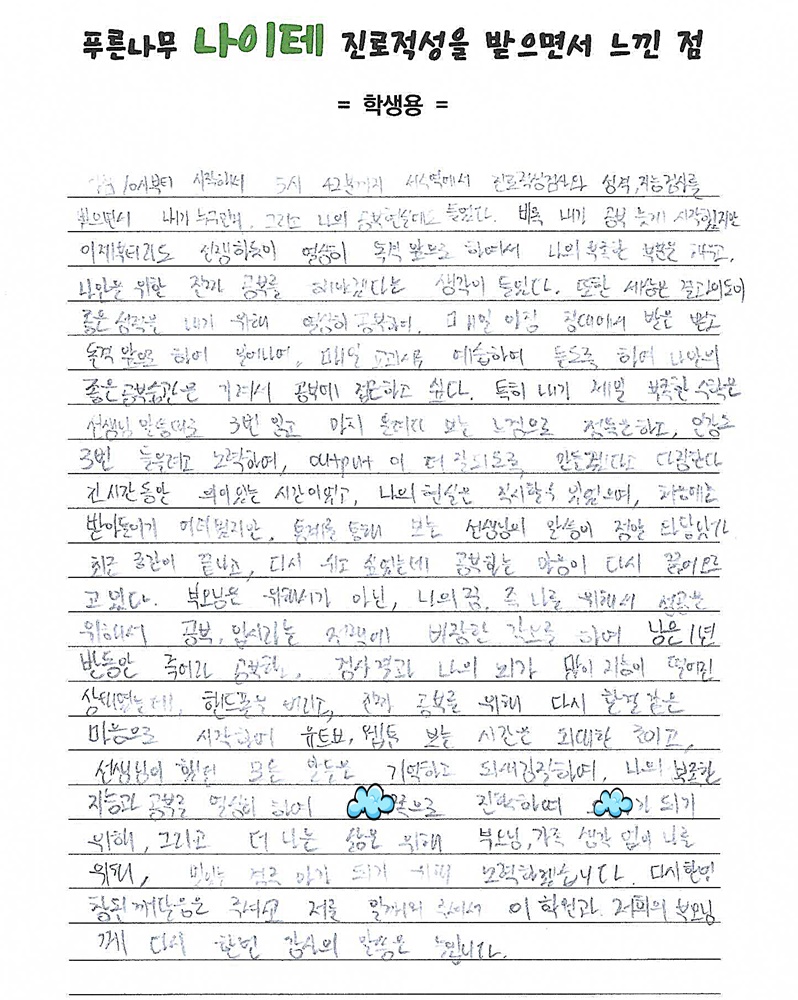 푸른나무 나이테 진로적성을 받으면서 느낀 점
= 학생용 =
10시부터 시작해서 5시 42분까지 진로적성검사와 성격, 지능검사를
받으면서 내가 그리고 나의 들었다. 비록 내가 공부 늦게 시작했지만
이제부터라도 열심히 독격 앞으로 하여서 나의 부족한 부분을
나만을 위한 진짜 공부를 해야겠다는 생각이 들었다. 또한
좋은 성적을 내기 위해 열심히 공부하여, 매일 아침
독격 앞으로 하여 매일 교과서를 예습하여 하여 나만의
좋은 공부습관을 가져서 공부에 접근하고 싶다. 특히 내가 제일 부족한
선생님 말씀대로 3번 읽고 마지 보는 느낌으로 정독을 하고, 인강도
3번 들으려고 노력하여, output 이 더 잘되도록, 만들겠다고 다짐한다
긴 시간동안 의미있는 시간이었고, 나의 현실을 직시할 수 있었으며, 처음에는
받아들이기 어려웠지만, 통계를 통해 보는 선생님의 말씀이 정말
최근 끝나고, 다시 쉬고 싶었는데 공부하는 마음이 다시 끓어오르
고 있다. 부모님을 위해서가 아닌, 나의 꿈, 즉 나를 위해서 성공을
위해서 공부, 입시라는 비장한 각오를 하여 남은 1년
반동안 죽어라 공부하고, 검사 결과 나의 뇌가 많이 지능이 떨어진
상태였는데, 핸드폰을 버리고, 진짜 공부를 위해 다시 한결같은
마음으로 시작하여 유튜브, 웹툰 보는 시간을 최대한 줄이고,
선생님이 했던 모든 말들을 기억하고 되새김질하여, 나의 부족한
지능과 공부를 열심히 하여 쪽으로 진학하여 가 되기
위해, 그리고 더 나은 삶을 위해 부모님, 가족 생각 없이 나를
위해, 되기 위해 노력하겠습니다. 다시한번
참된 깨달음을 주셔서 저를 일깨워 주셔서 이 학원과 저희의 부모님
께 다시 한번 감사의 말씀을 드립니다.